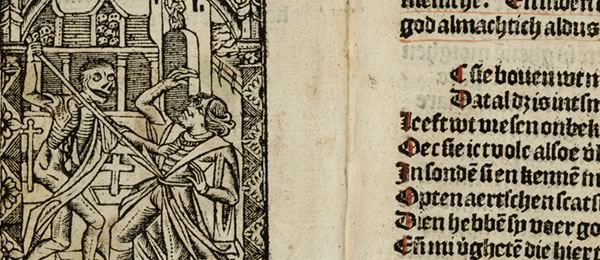 god almachtich aldus
Sie bouen wt m
Dat al dz is int sm
Leeft wt vresen onbek
Oec sie ic tvolc alsoe
In sondē si en kennē m
Op ten aertschen scats
Dien hebbē sy voer go
En̄ mi v̄ghetē die hier t